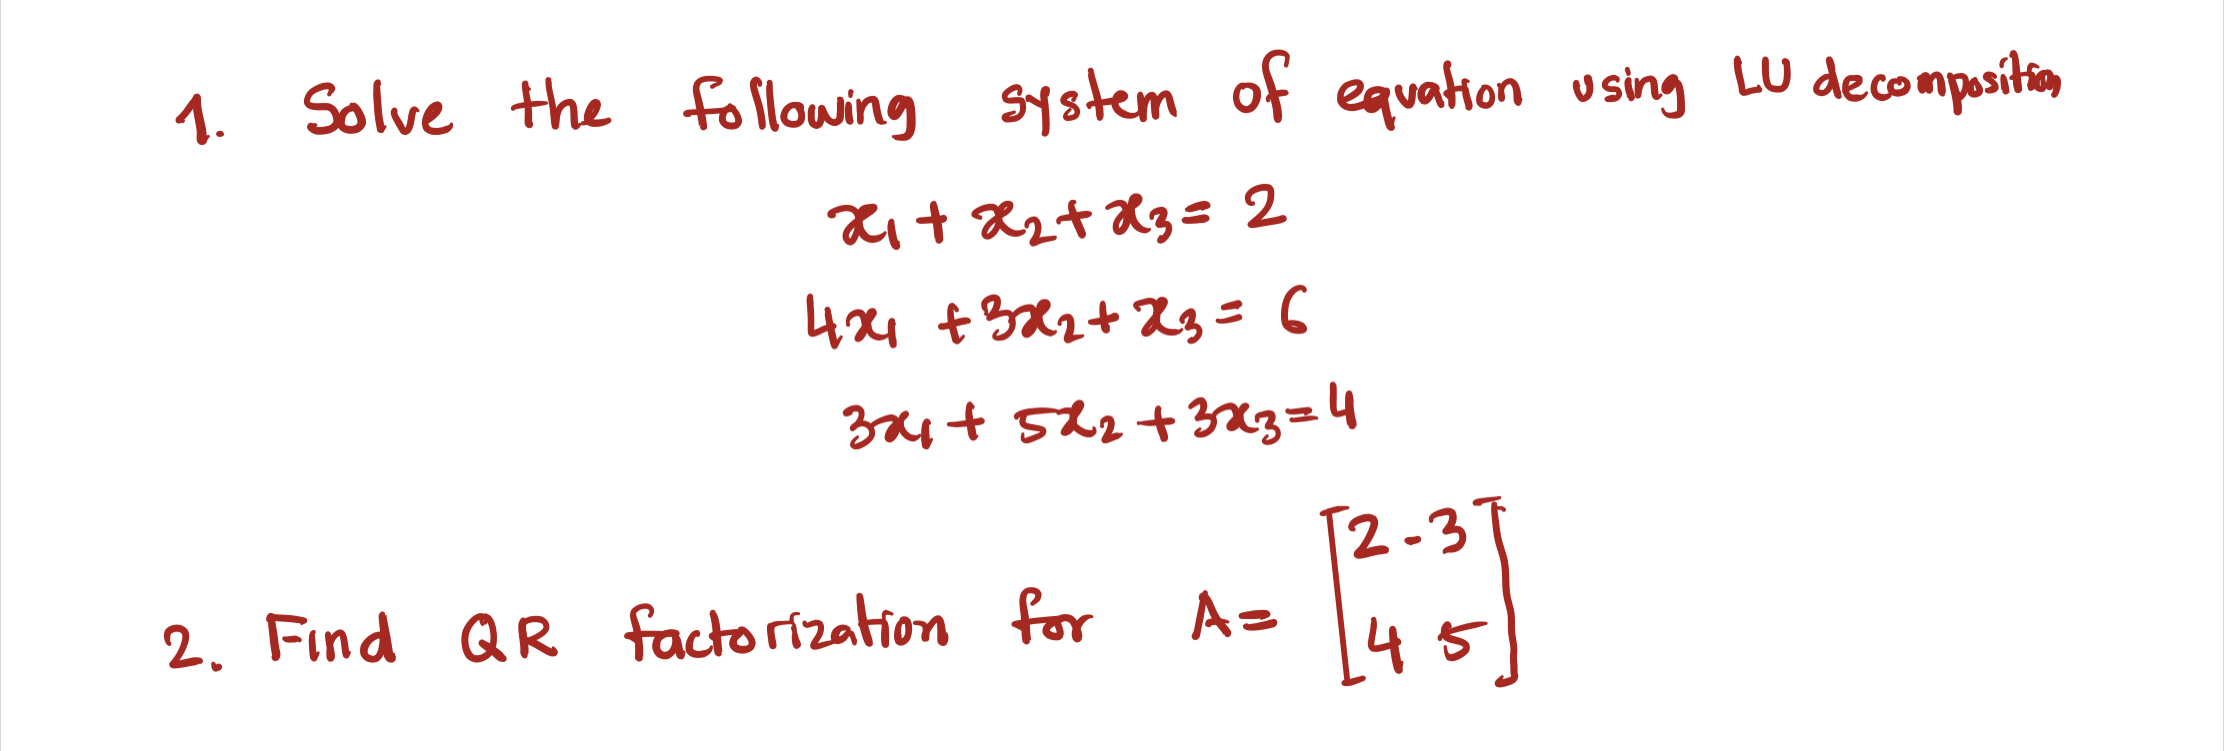 1. Solve the following system of equation using LU decomposition
x₁ + x₂ + x₃ = 2
4x₁ + 3x₂ + x₃ = 6
3x₁ + 5x₂ + 3x₃ = 4
2. Find QR factorization for A = [2 -3
4 5]